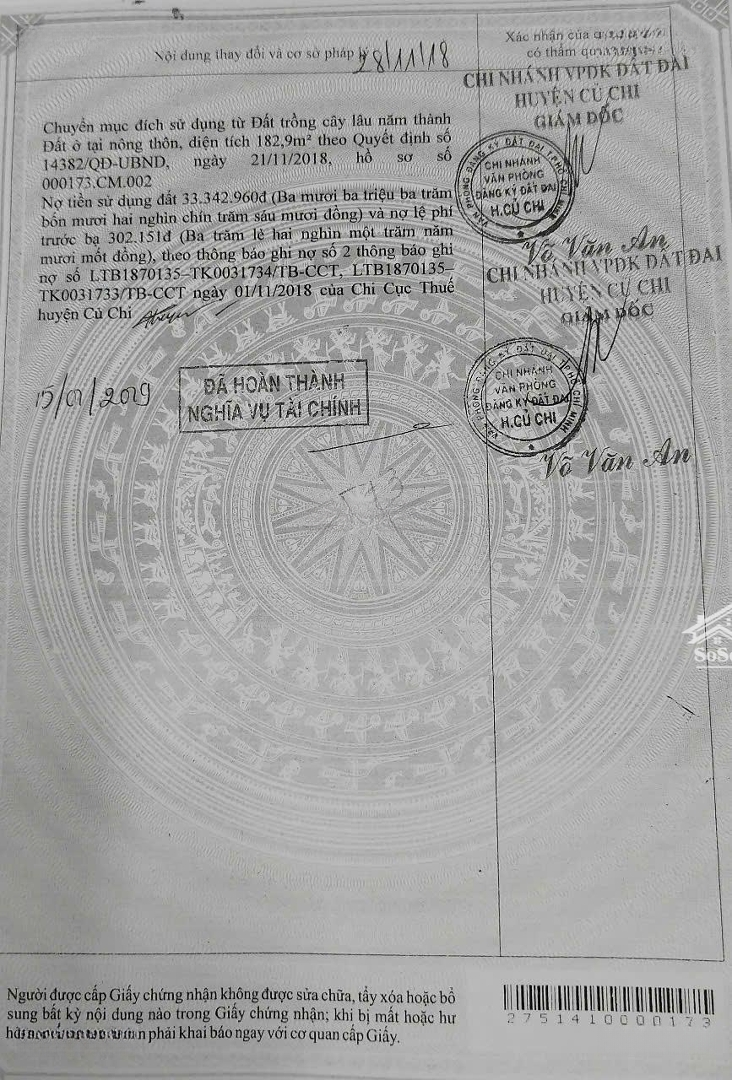 Nội dung thay đổi và cơ sở pháp lý
28/11/18
Xác nhận của
có thẩm
CHI NHÁNH VPĐK ĐẤT ĐAI
HUYỆN CỦ CHI
GIÁM ĐỐC
Chuyển mục đích sử dụng từ Đất trồng cây lâu năm thành
Đất ở tại nông thôn, diện tích 182,9m² theo Quyết định số
14382/QĐ-UBND, ngày 21/11/2018, hồ sơ số
000173.CM.002
Nợ tiền sử dụng đất 33.342.960đ (Ba mươi ba triệu ba trăm
bốn mươi hai nghìn chín trăm sáu mươi đồng) và nợ lệ phí
trước bạ 302.151đ (Ba trăm lẻ hai nghìn một trăm năm
mươi mốt đồng), theo thông báo ghi nợ số 2 thông báo ghi
nợ số LTB1870135–TK0031734/TB-CCT, LTB1870135–
TK0031733/TB-CCT ngày 01/11/2018 của Chi Cục Thuế
huyện Củ Chi
VĂN PHÒNG ĐĂNG KÝ ĐẤT ĐAI TP.HỒ CHÍ MINH
CHI NHÁNH
VĂN PHÒNG
ĐĂNG KÝ ĐẤT ĐAI
H.CỦ CHI
Võ Văn An
CHI NHÁNH VPĐK ĐẤT ĐAI
HUYỆN CỦ CHI
GIÁM ĐỐC
15/01/2019
ĐÃ HOÀN THÀNH
NGHĨA VỤ TÀI CHÍNH
VĂN PHÒNG ĐĂNG KÝ ĐẤT ĐAI TP.HỒ CHÍ MINH
CHI NHÁNH
VĂN PHÒNG
ĐĂNG KÝ ĐẤT ĐAI
H.CỦ CHI
Võ Văn An
Người được cấp Giấy chứng nhận không được sửa chữa, tẩy xóa hoặc bổ
sung bất kỳ nội dung nào trong Giấy chứng nhận; khi bị mất hoặc hư
phải khai báo ngay với cơ quan cấp Giấy.
2751410000173